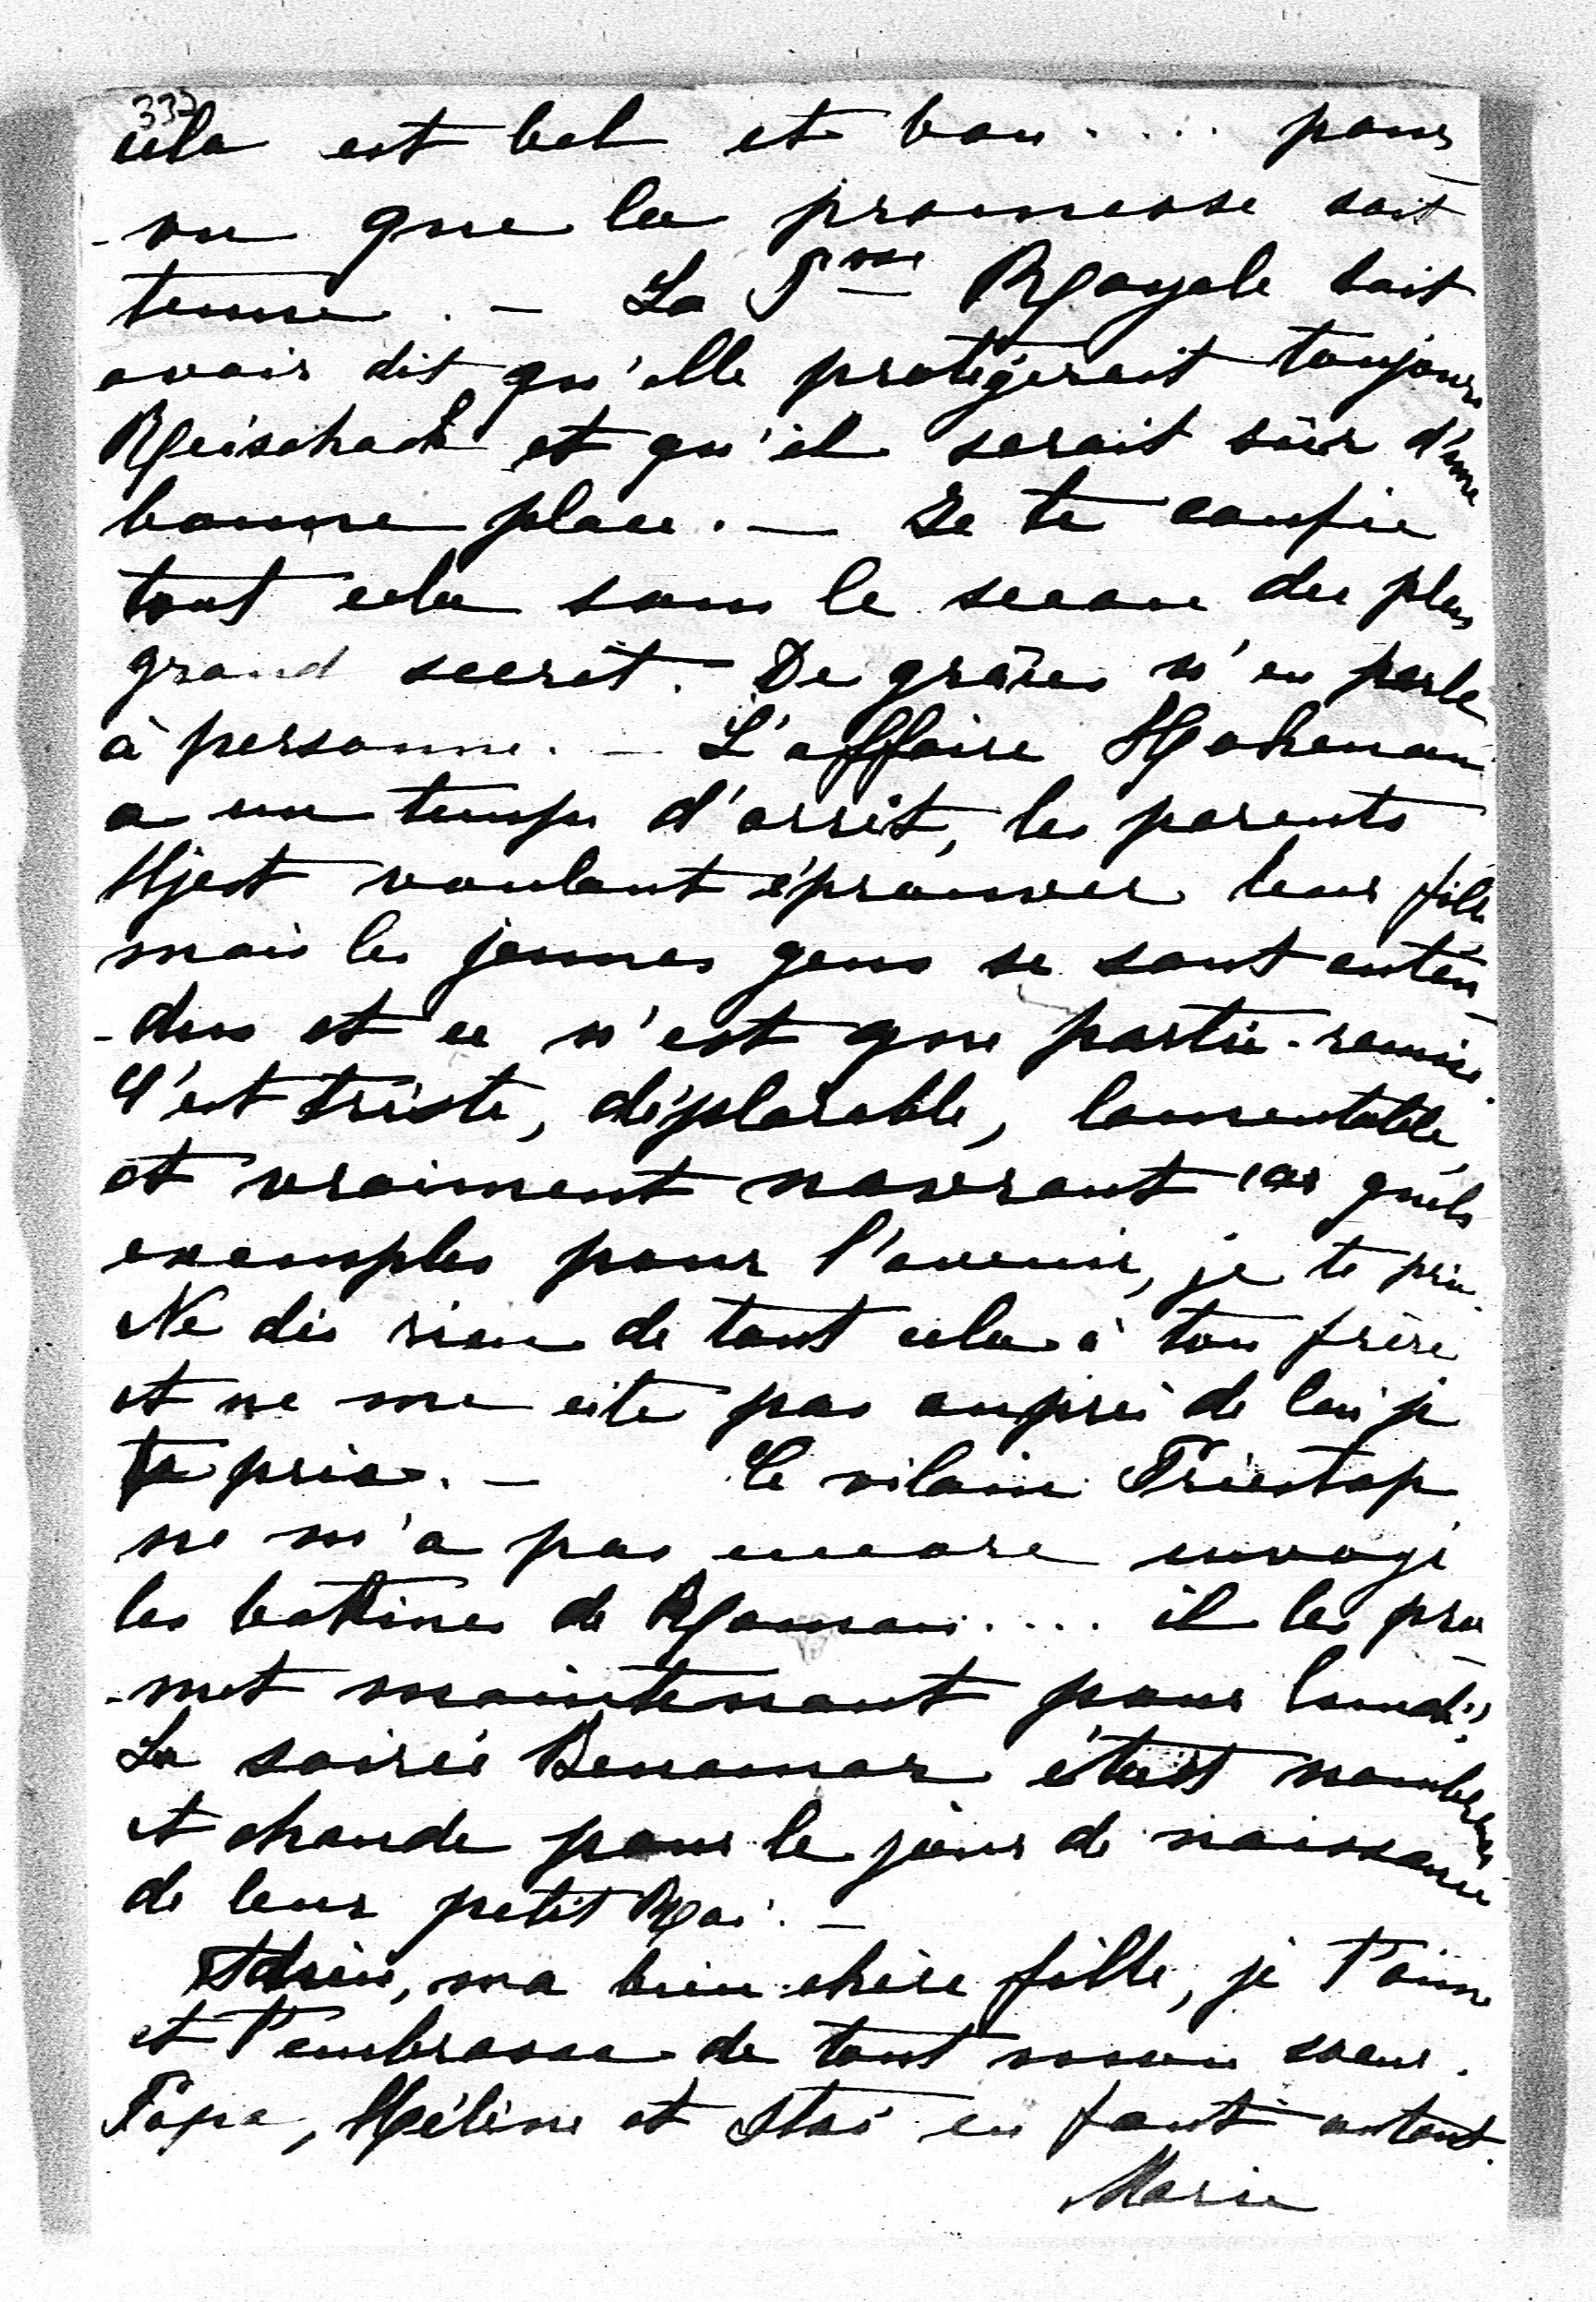 337
cela est bel et bon .... pour
-vu que la promesse soit
tenue. - La Psse Royale doit
avoir dit qu'elle protégerait toujours
Reischach et qu'il serait sûr d'une
bonne place. - Je te confie
tout cela sous le sceau du plus
grand secret. - De grâce n'en parle
à personne. - L'affaire Hohenau
a un temps d'arrêt, les parents
voulant éprouver leur fille
mais les jeunes gens se sont enten
-dus et ce n'est que partie-remise.
C'est triste, déplorable, lamentable,
et vraiment navrant car quels
exemples pour l'avenir, je te prie.
Ne dis rien de tout cela à ton frère
et ne me cite pas auprès de lui je
te prie. - Le vilain
ne m'a pas encore envoyé
les bottines de .... il les pro
-met maintenant pour lundi!
La soirée Benomar était nombreuse
et chaude pour le jour de naissance
de leur petit Roi. -
Adieu, ma bien chère fille, je t'aime
et t'embrasse de tout mon coeur.
Papa, Hélène et en font autant.
Marie